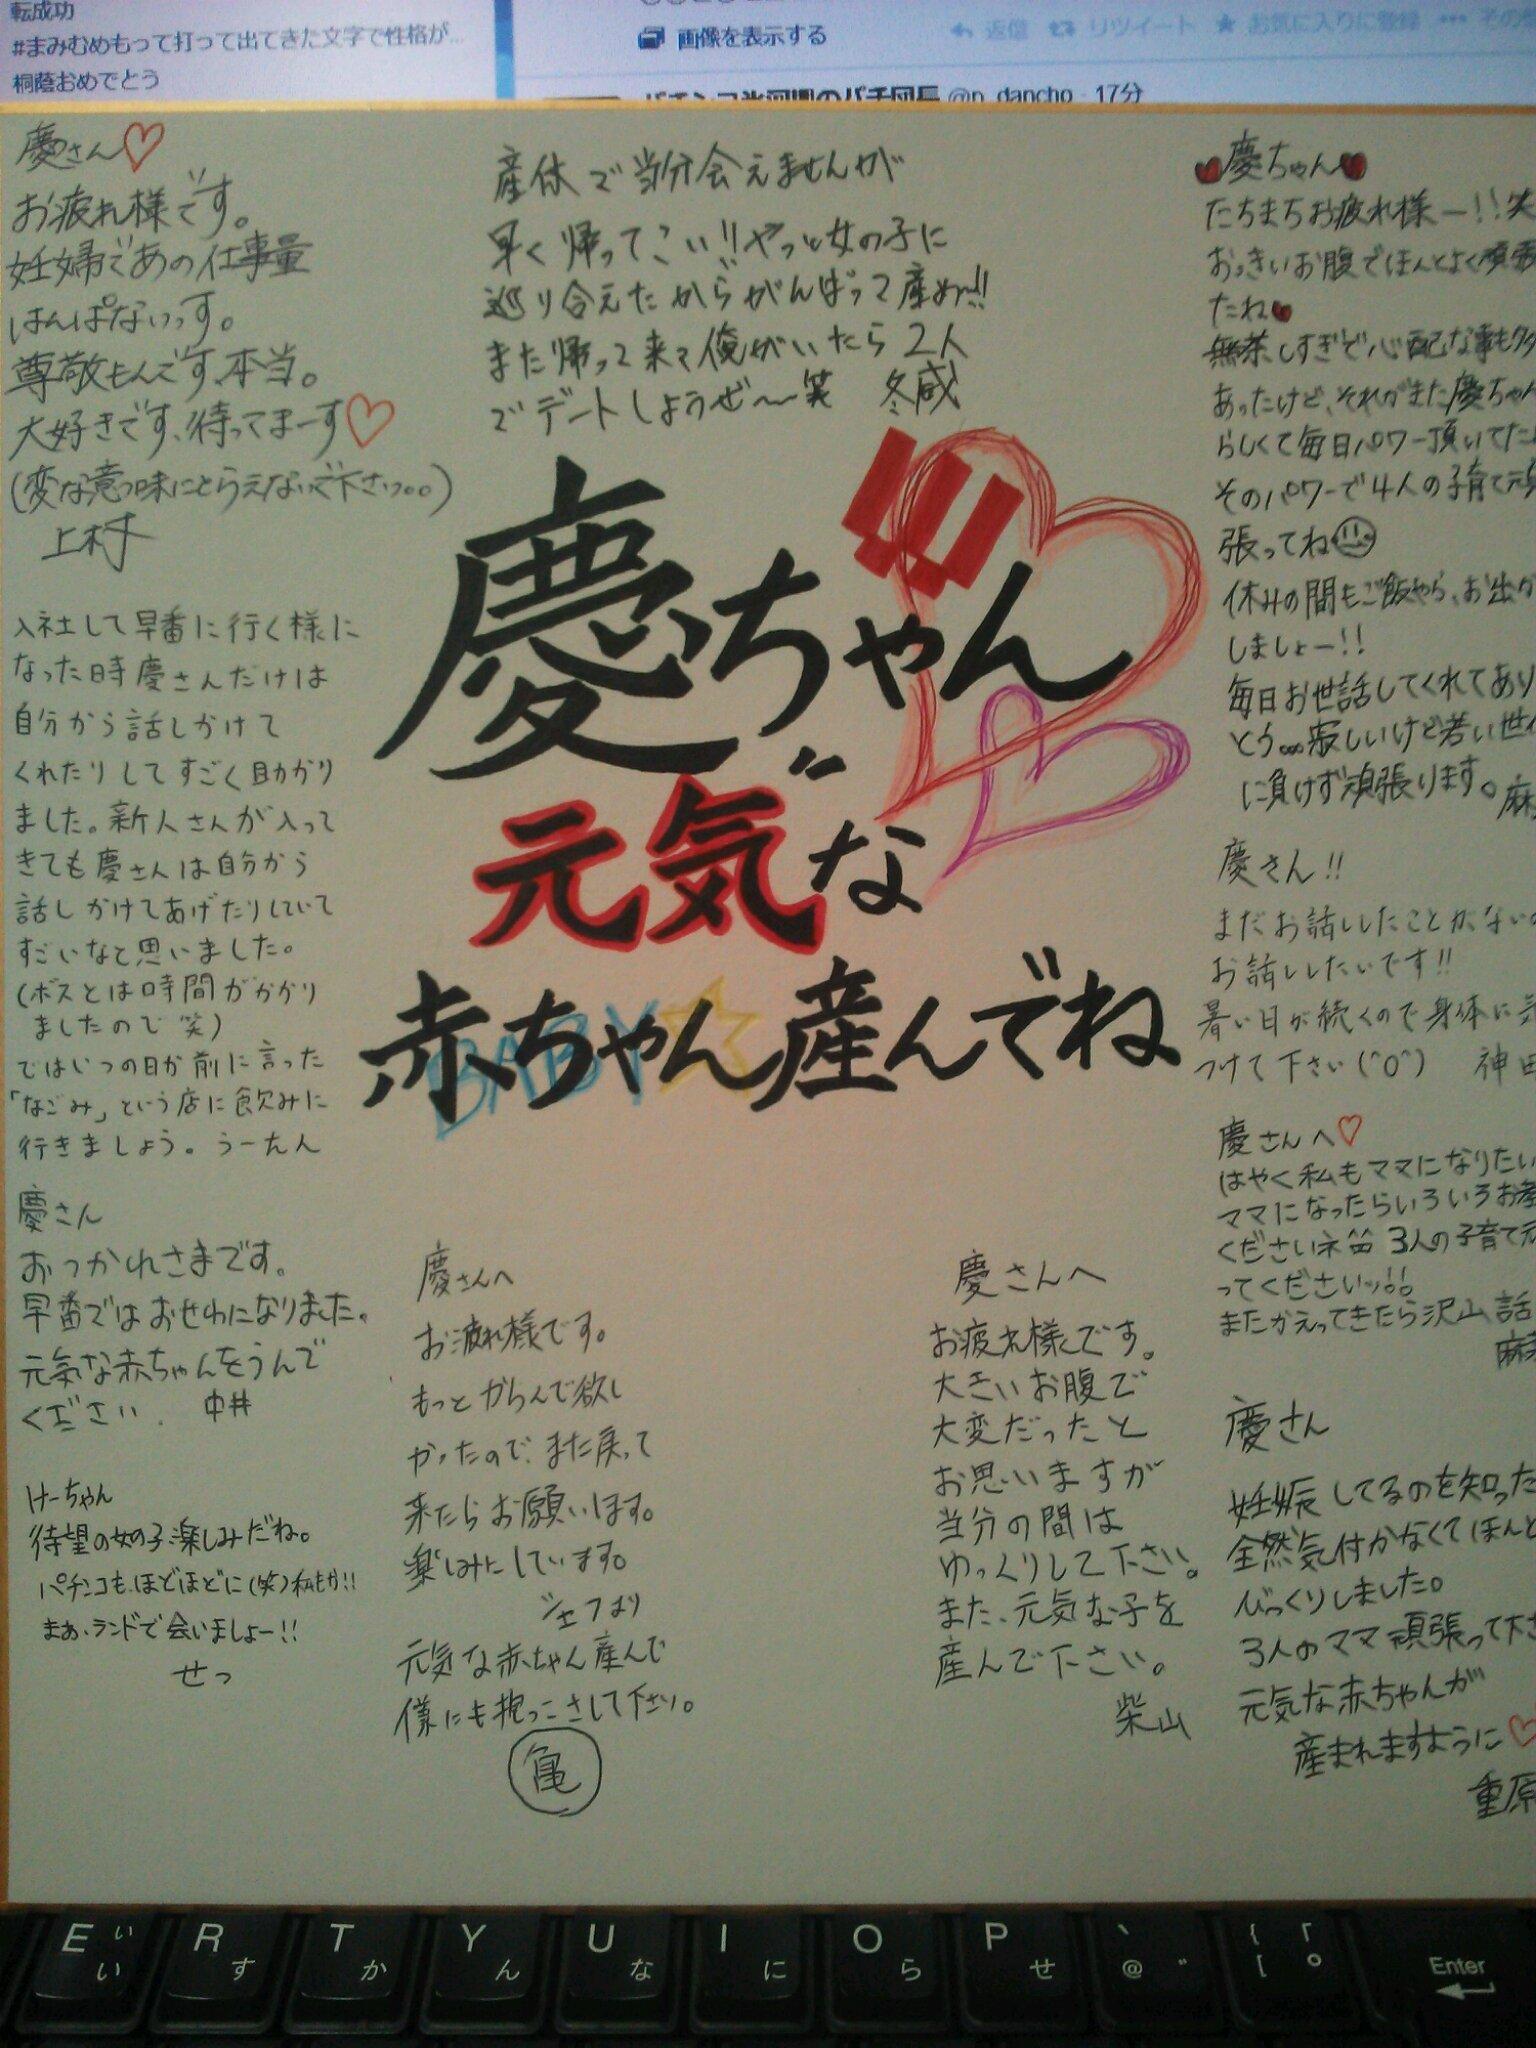 転成功
#まみむめもって打って出てきた文字で性格が...
桐蔭おめでとう
画像を表示する
返信 リツイート お気に入りに登録
@p_dancho · 17分
慶さん♡
お疲れ様です。
妊婦であの仕事量
はんぱないっす。
尊敬もんです、本当。
大好きです、待ってまーす♡
(変な意味にとらえないで下さいっ。。)
上村
入社して早番に行く様に
なった時慶さんだけは
自分から話しかけて
くれたりしてすごく助かり
ました。新人さんが入って
きても慶さんは自分から
話しかけてあげたりしていて
すごいなと思いました。
(ボスとは時間がかかり
ましたので笑)
ではいつの日か前に言った
「なごみ」という店に飲みに
行きましょう。うーたん
慶さん
おつかれさまです。
早番ではおせわになりました。
元気な赤ちゃんをうんで
ください. 中井
けーちゃん
待望の女の子、楽しみだね。
パチンコも、ほどほどに(笑)私もか!!
まあ、ランドで会いましょー!!
せっ
産休で当分会えませんが
早く帰ってこい!!やっと女の子に
巡り合えたからがんばって産め!!
また帰って来て俺がいたら2人
でデートしようぜ〜笑
慶ちゃん!!
元気な
赤ちゃん産んでね
BABY☆
慶さんへ
お疲れ様です。
もっとからんで欲し
かったので、また戻って
来たらお願いします。
楽しみにしています。
シェフより
元気な赤ちゃん産んで
僕にも抱っこさして下さい。
亀
慶さんへ
お疲れ様です。
大きいお腹で
大変だったと
お思いますが
当分の間は
ゆっくりして下さい。
また、元気な子を
産んで下さい。
柴山
♥慶ちゃん♥
たちまちお疲れ様ー!!笑
おっきいお腹でほんとよく頑張
たね♥
無茶しすぎで心配な事も多
あったけど、それがまた慶ちゃん
らしくて毎日パワー頂いてた
そのパワーで4人の子育て頑
張ってね
休みの間もご飯やら、お出か
しましょー!!
毎日お世話してくれてあり
とう...寂しいけど若い世代
に負けず頑張ります。麻
慶さん!!
まだお話ししたことがないの
お話ししたいです!!
暑い日が続くので身体に気
つけて下さい(^O^) 神田
慶さんへ♡
はやく私もママになりたい
ママになったらいろいろお
くださいネ 3人の子育て
ってくださいッ!!
またかえってきたら沢山話
麻
慶さん
妊娠してるのを知った
全然気付かなくてほんと
びっくりしました。
3人のママ頑張って下さ
元気な赤ちゃんが
産まれますように♡
重原
E い ぃ
R す
T か
Y ん
U な
I に
O ら
P せ
` @ ゛
{ [ 「 ゜
Enter